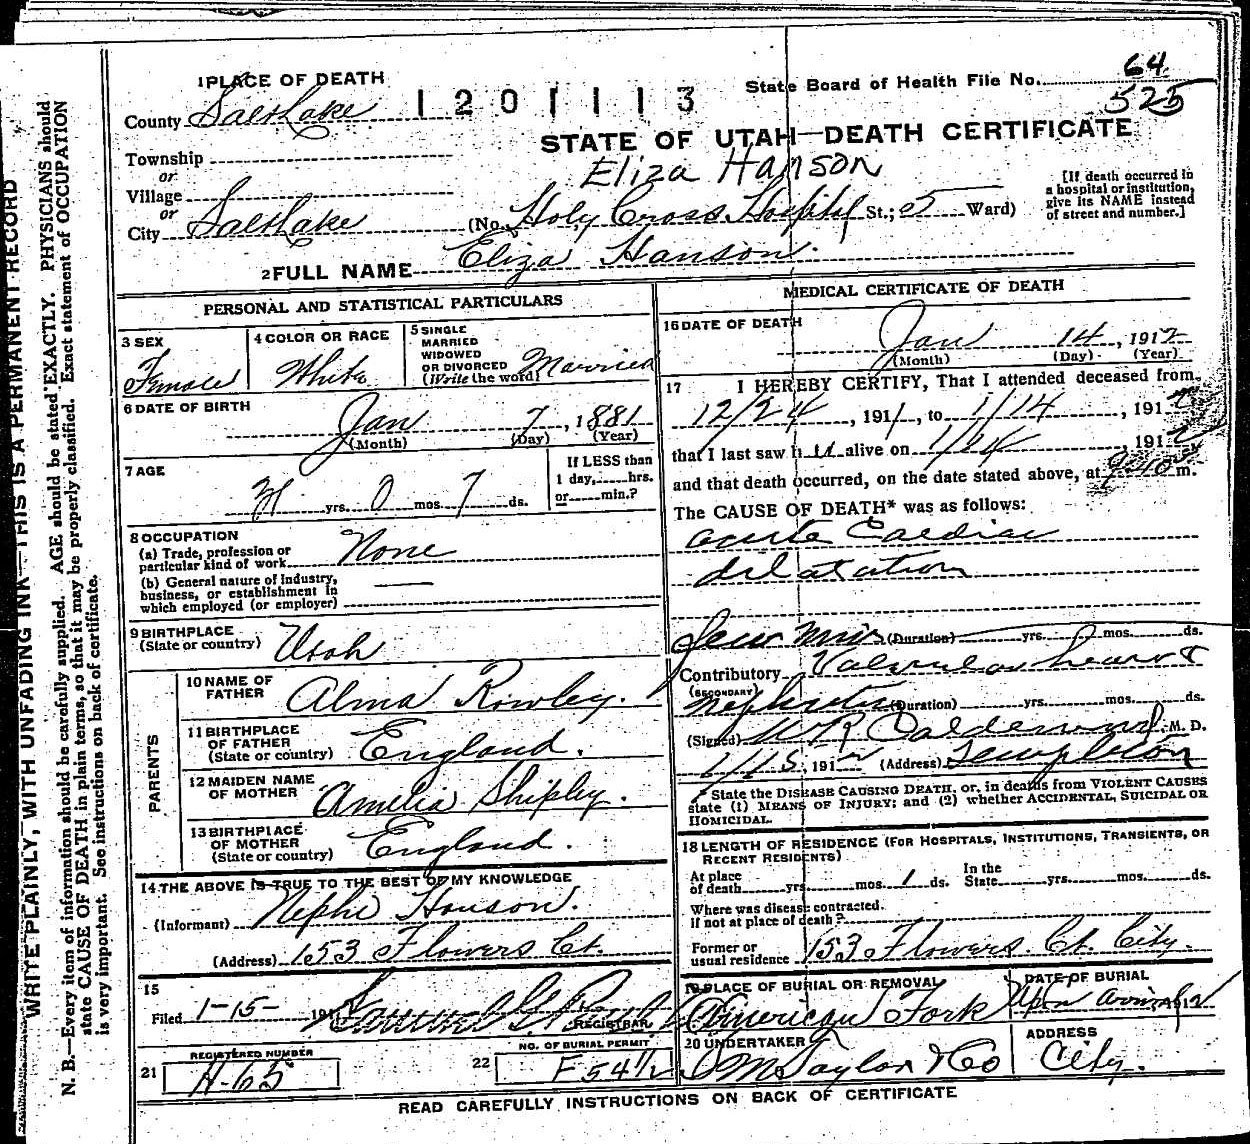 64
State Board of Health File No. 525
1 PLACE OF DEATH
1201113
County Salt Lake
STATE OF UTAH—DEATH CERTIFICATE
Township
Eliza Hanson
or
Village
or
City Salt Lake (No. Holy Cross Hospital St.; 5 Ward)
[If death occurred in
a hospital or institution,
give its NAME instead
of street and number.]
2 FULL NAME Eliza Hanson.
PERSONAL AND STATISTICAL PARTICULARS
3 SEX
Female
4 COLOR OR RACE
White
5 SINGLE
MARRIED
WIDOWED
OR DIVORCED
(Write the word) Married
6 DATE OF BIRTH
Jan 7, 1881
(Month) (Day) (Year)
7 AGE
yrs. 0 mos. 7 ds.
If LESS than
1 day,.....hrs.
or.....min.?
8 OCCUPATION
(a) Trade, profession or
particular kind of work None
(b) General nature of industry,
business, or establishment in
which employed (or employer)
9 BIRTHPLACE
(State or country) Utah
PARENTS
10 NAME OF
FATHER Alma Rowley.
11 BIRTHPLACE
OF FATHER
(State or country) England.
12 MAIDEN NAME
OF MOTHER Amelia Shipley.
13 BIRTHPLACE
OF MOTHER
(State or country) England.
14 THE ABOVE IS TRUE TO THE BEST OF MY KNOWLEDGE
(Informant) Nephi Hanson.
(Address) 153 Flowers Ct.
15
Filed 1-15- 191 Samuel G.
REGISTRAR
21 REGISTERED NUMBER
H-65
22 NO. OF BURIAL PERMIT
F 54 1/2
MEDICAL CERTIFICATE OF DEATH
16 DATE OF DEATH
Jan 14, 1912
(Month) (Day) (Year)
17 I HEREBY CERTIFY, That I attended deceased from
12/24, 1911, to 1/14, 1912
that I last saw h alive on 1/14, 1912,
and that death occurred, on the date stated above, at 9:40 m.
The CAUSE OF DEATH* was as follows:
acute Cardiac
dilatation
few mins (Duration) yrs. mos. ds.
Contributory Valvular heart &
(SECONDARY)
nephritis (Duration) yrs. mos. ds.
(Signed) W R Calderwood, M. D.
1/15, 1912 (Address) Templeton
* State the DISEASE CAUSING DEATH, or, in deaths from VIOLENT CAUSES
state (1) MEANS OF INJURY; and (2) whether ACCIDENTAL, SUICIDAL OR
HOMICIDAL.
18 LENGTH OF RESIDENCE (FOR HOSPITALS, INSTITUTIONS, TRANSIENTS, OR
RECENT RESIDENTS)
At place
of death yrs. mos. 1 ds.
In the
State yrs. mos. ds.
Where was disease contracted.
if not at place of death?
Former or
usual residence 153 Flowers Ct. City.
19 PLACE OF BURIAL OR REMOVAL
American Fork
DATE OF BURIAL
Upon arrival, 1912
20 UNDERTAKER
S M Taylor & Co
ADDRESS
City.
READ CAREFULLY INSTRUCTIONS ON BACK OF CERTIFICATE
WRITE PLAINLY, WITH UNFADING INK—THIS IS A PERMANENT RECORD
N. B.—Every item of information should be carefully supplied. AGE should be stated EXACTLY. PHYSICIANS should
state CAUSE OF DEATH in plain terms, so that it may be properly classified. Exact statement of OCCUPATION
is very important. See instructions on back of certificate.